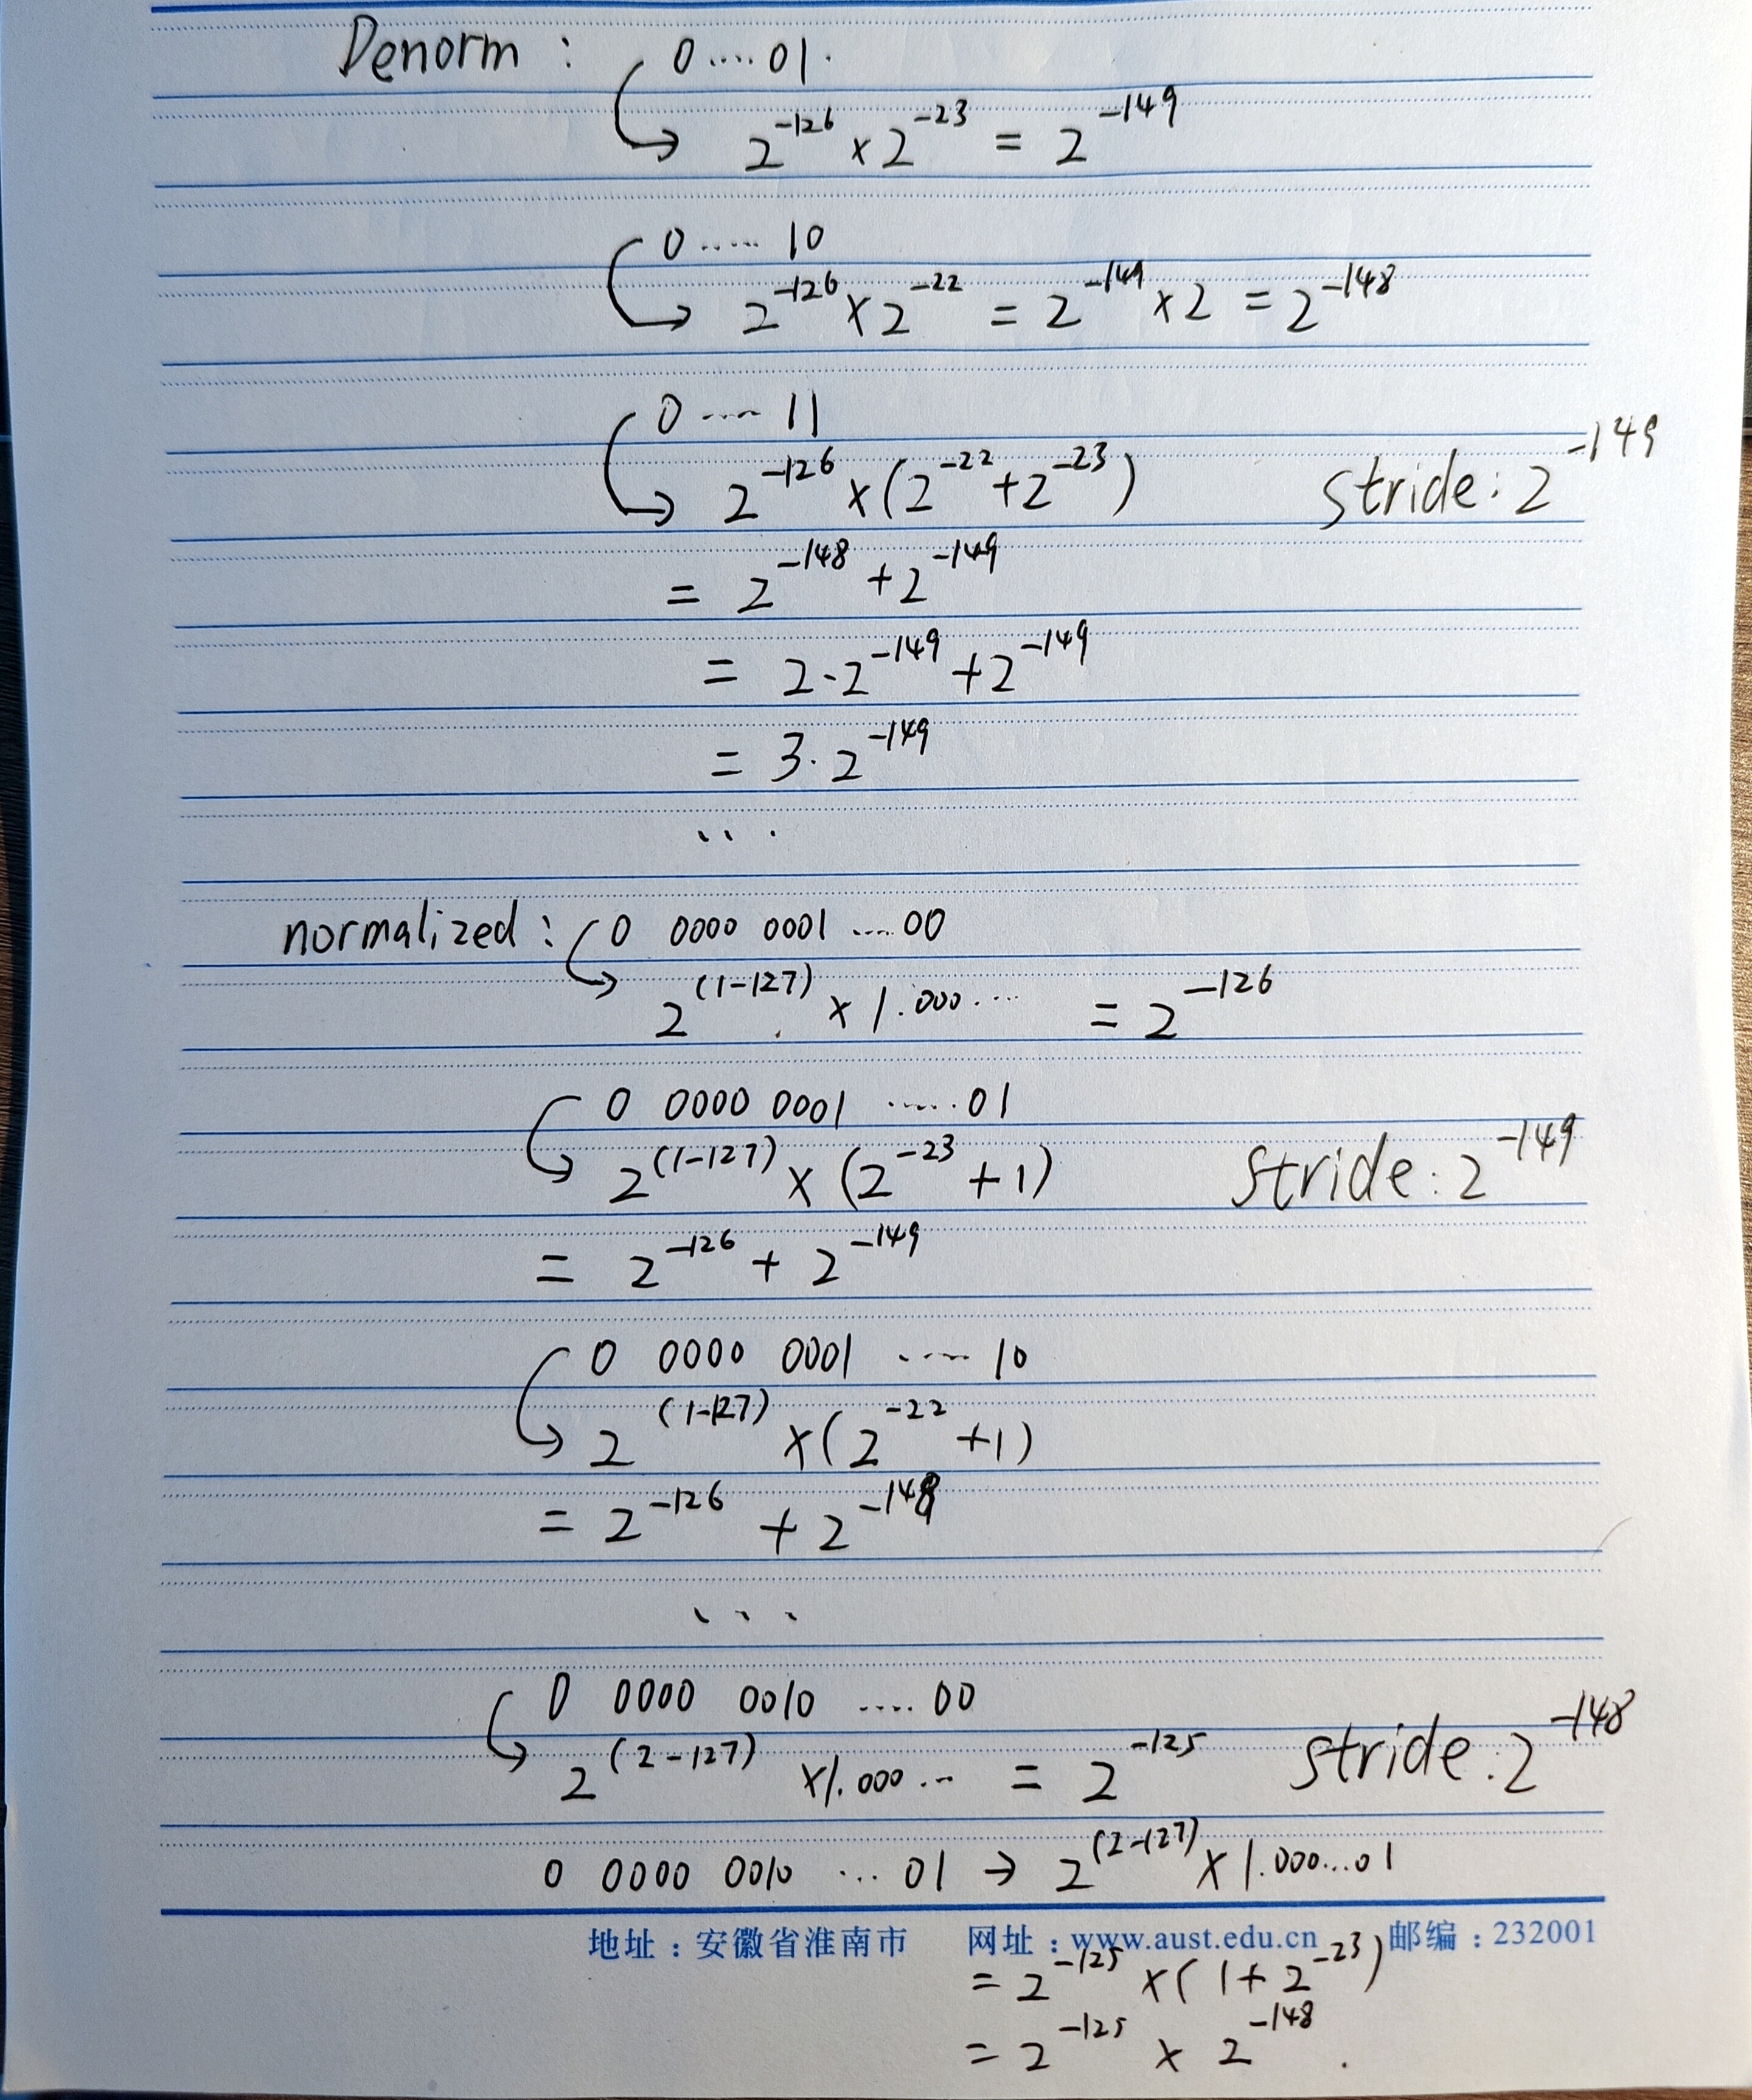 Denorm : 0....01.
2^-126 × 2^-23 = 2^-149
0..... 10
2^-126 × 2^-22 = 2^-149 × 2 = 2^-148
0 .... 11
2^-126 × (2^-22 + 2^-23) stride: 2^-149
= 2^-148 + 2^-149
= 2·2^-149 + 2^-149
= 3·2^-149
...
normalized : 0 0000 0001 ....00
2^(1-127) × 1.000.... = 2^-126
0 0000 0001 .....01
2^(1-127) × (2^-23 + 1) stride: 2^-149
= 2^-126 + 2^-149
0 0000 0001 ..... 10
2^(1-127) × (2^-22 + 1)
= 2^-126 + 2^-148
...
0 0000 0010 .... 00
2^(2-127) ×1.000... = 2^-125 stride: 2^-148
0 0000 0010 ... 01 → 2^(2-127) × 1.000...01
地址：安徽省淮南市 网址：www.aust.edu.cn 邮编：232001
= 2^-125 × (1 + 2^-23)
= 2^-125 × 2^-148 .